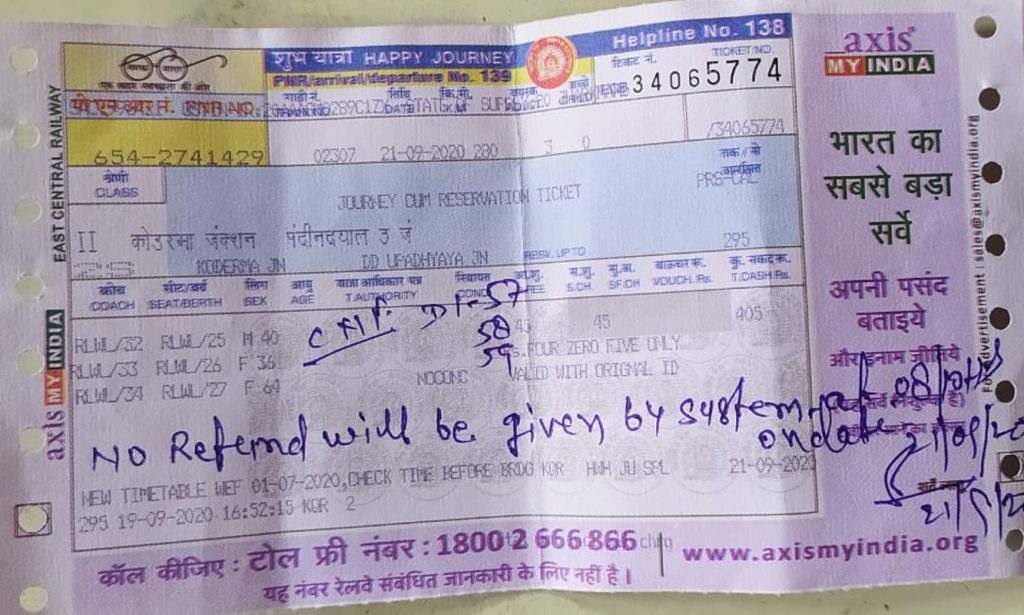 स्वच्छ भारत
एक कदम स्वच्छता की ओर
शुभ यात्रा HAPPY JOURNEY
PNR/arrival/departure No. 139
Helpline No. 138
टिकट नं. TICKET NO.
34065774
पी एन आर नं. PNR NO. गाड़ी नं. तिथि DATE कि.मी. K.M.
654-2741429 02307 21-09-2020 280 3 0 /34065774
श्रेणी
CLASS
JOURNEY CUM RESERVATION TICKET PRS-
II कोडरमा जंक्शन पंदीनदयाल उ जं 295
2S KODERMA JN DD UPADHYAYA JN RESV. UP TO
कोच सीट/बर्थ लिंग आयु यात्रा अधिकार पत्र रियायत आ.शु. स.शु. सु.प्र. वाऊचर रू. कु. नकद रू.
COACH SEAT/BERTH SEX AGE T.AUTHORITY CONC. S.CH. SF.CH VOUCH.Rs. T.CASH.Rs.
RLWL/32 RLWL/25 M 40 57 45 45 405
RLWL/33 RLWL/26 F 36 58 FOUR ZERO FIVE ONLY
RLWL/34 RLWL/27 F 64 59 NOCONC VALID WITH ORIGNAL ID
No Refernd will be given by system at
ondate 21/09/20
NEW TIMETABLE WEF 01-07-2020,CHECK TIME BEFORE BRDG KQR HWH JU SPL 21-09-2020
295 19-09-2020 16:52:15 KQR 2
21/9/20
कॉल कीजिए : टोल फ्री नंबर : 1800 2 666 866
यह नंबर रेलवे संबंधित जानकारी के लिए नहीं है।
www.axismyindia.org
EAST CENTRAL RAILWAY
axis MY INDIA
axis
MY INDIA
भारत का
सबसे बड़ा
सर्वे
अपनी पसंद
बताइये
और इनाम जीतिये
For advertisement : sales@axismyindia.org